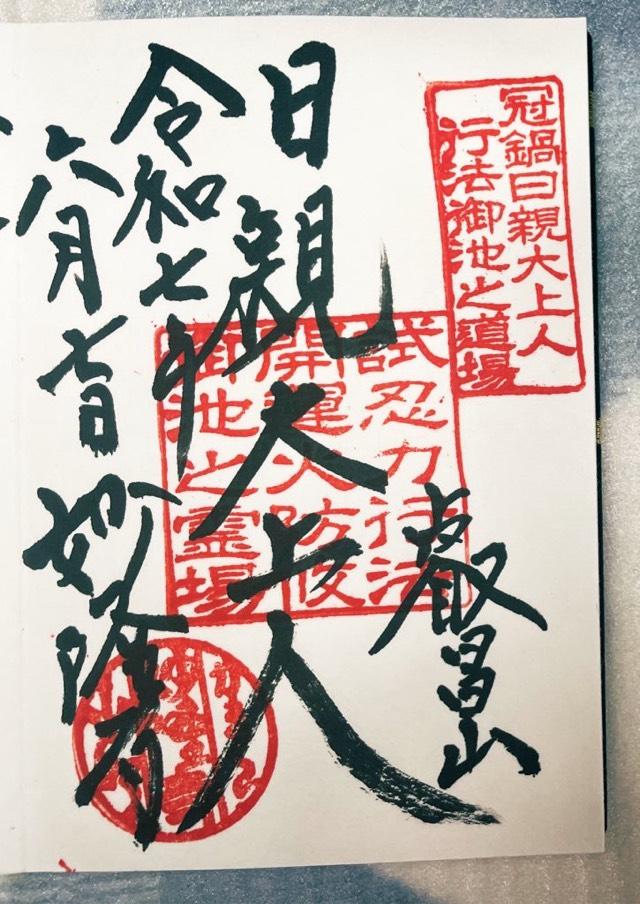 冠鍋日親大上人
行法御池之道場
叡昌山
日親大上人
試忍力行法
開運火防
御池之霊場
令和七年
六月七日
妙隆寺